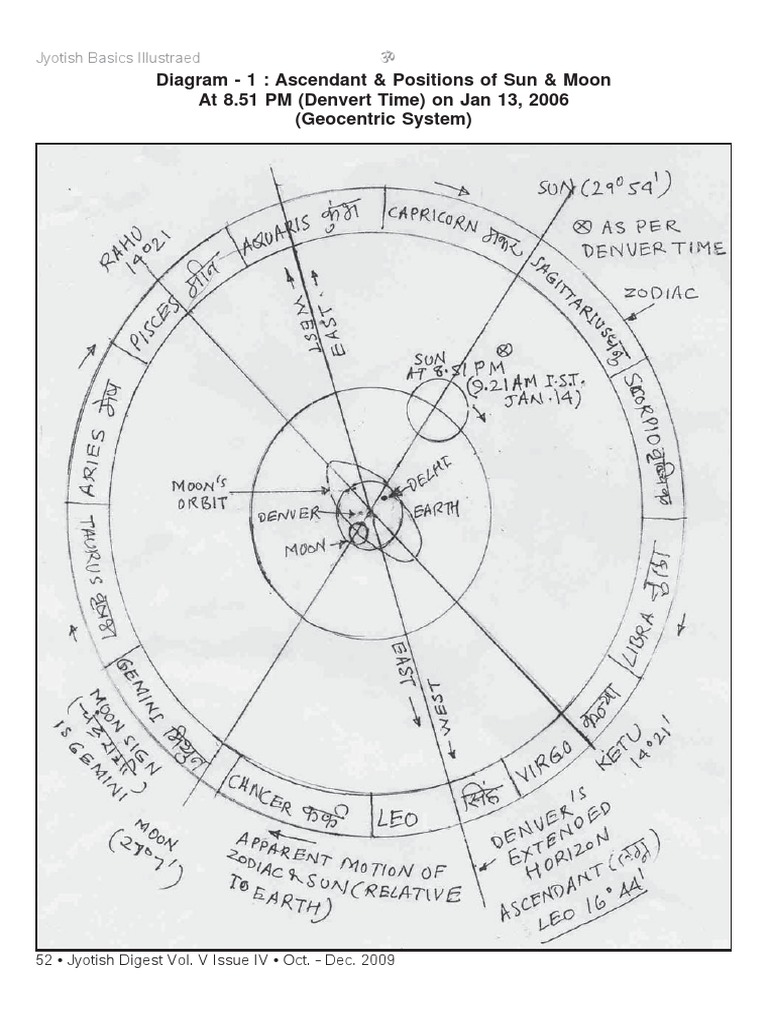 Jyotish Basics Illustraed
ॐ
Diagram - 1 : Ascendant & Positions of Sun & Moon
At 8.51 PM (Denvert Time) on Jan 13, 2006
(Geocentric System)
SUN (29° 54')
⊗ AS PER
DENVER TIME
ZODIAC
RAHU
14°21
AQUARIS कुंभ
CAPRICORN मकर
SAGITTARIUS धनु
SCORPIO वृश्चिक
PISCES मीन
ARIES मेष
TAURUS वृषभ
GEMINI मिथुन
CANCER कर्क
LEO सिंह
VIRGO कन्या
LIBRA
WEST
EAST
SUN ⊗
AT 8.51 PM
(9.21 AM I.S.T.
JAN. 14)
MOON'S
ORBIT
DELHI
DENVER
EARTH
MOON
EAST
WEST
KETU
14°21'
MOON SIGN
(चंद्र राशी)
IS GEMINI
MOON
(27°7')
APPARENT MOTION OF
ZODIAC & SUN (RELATIVE
TO EARTH)
DENVER'S
EXTENDED
HORIZON
ASCENDANT (लग्न)
LEO 16°44'
52 • Jyotish Digest Vol. V Issue IV • Oct. – Dec. 2009